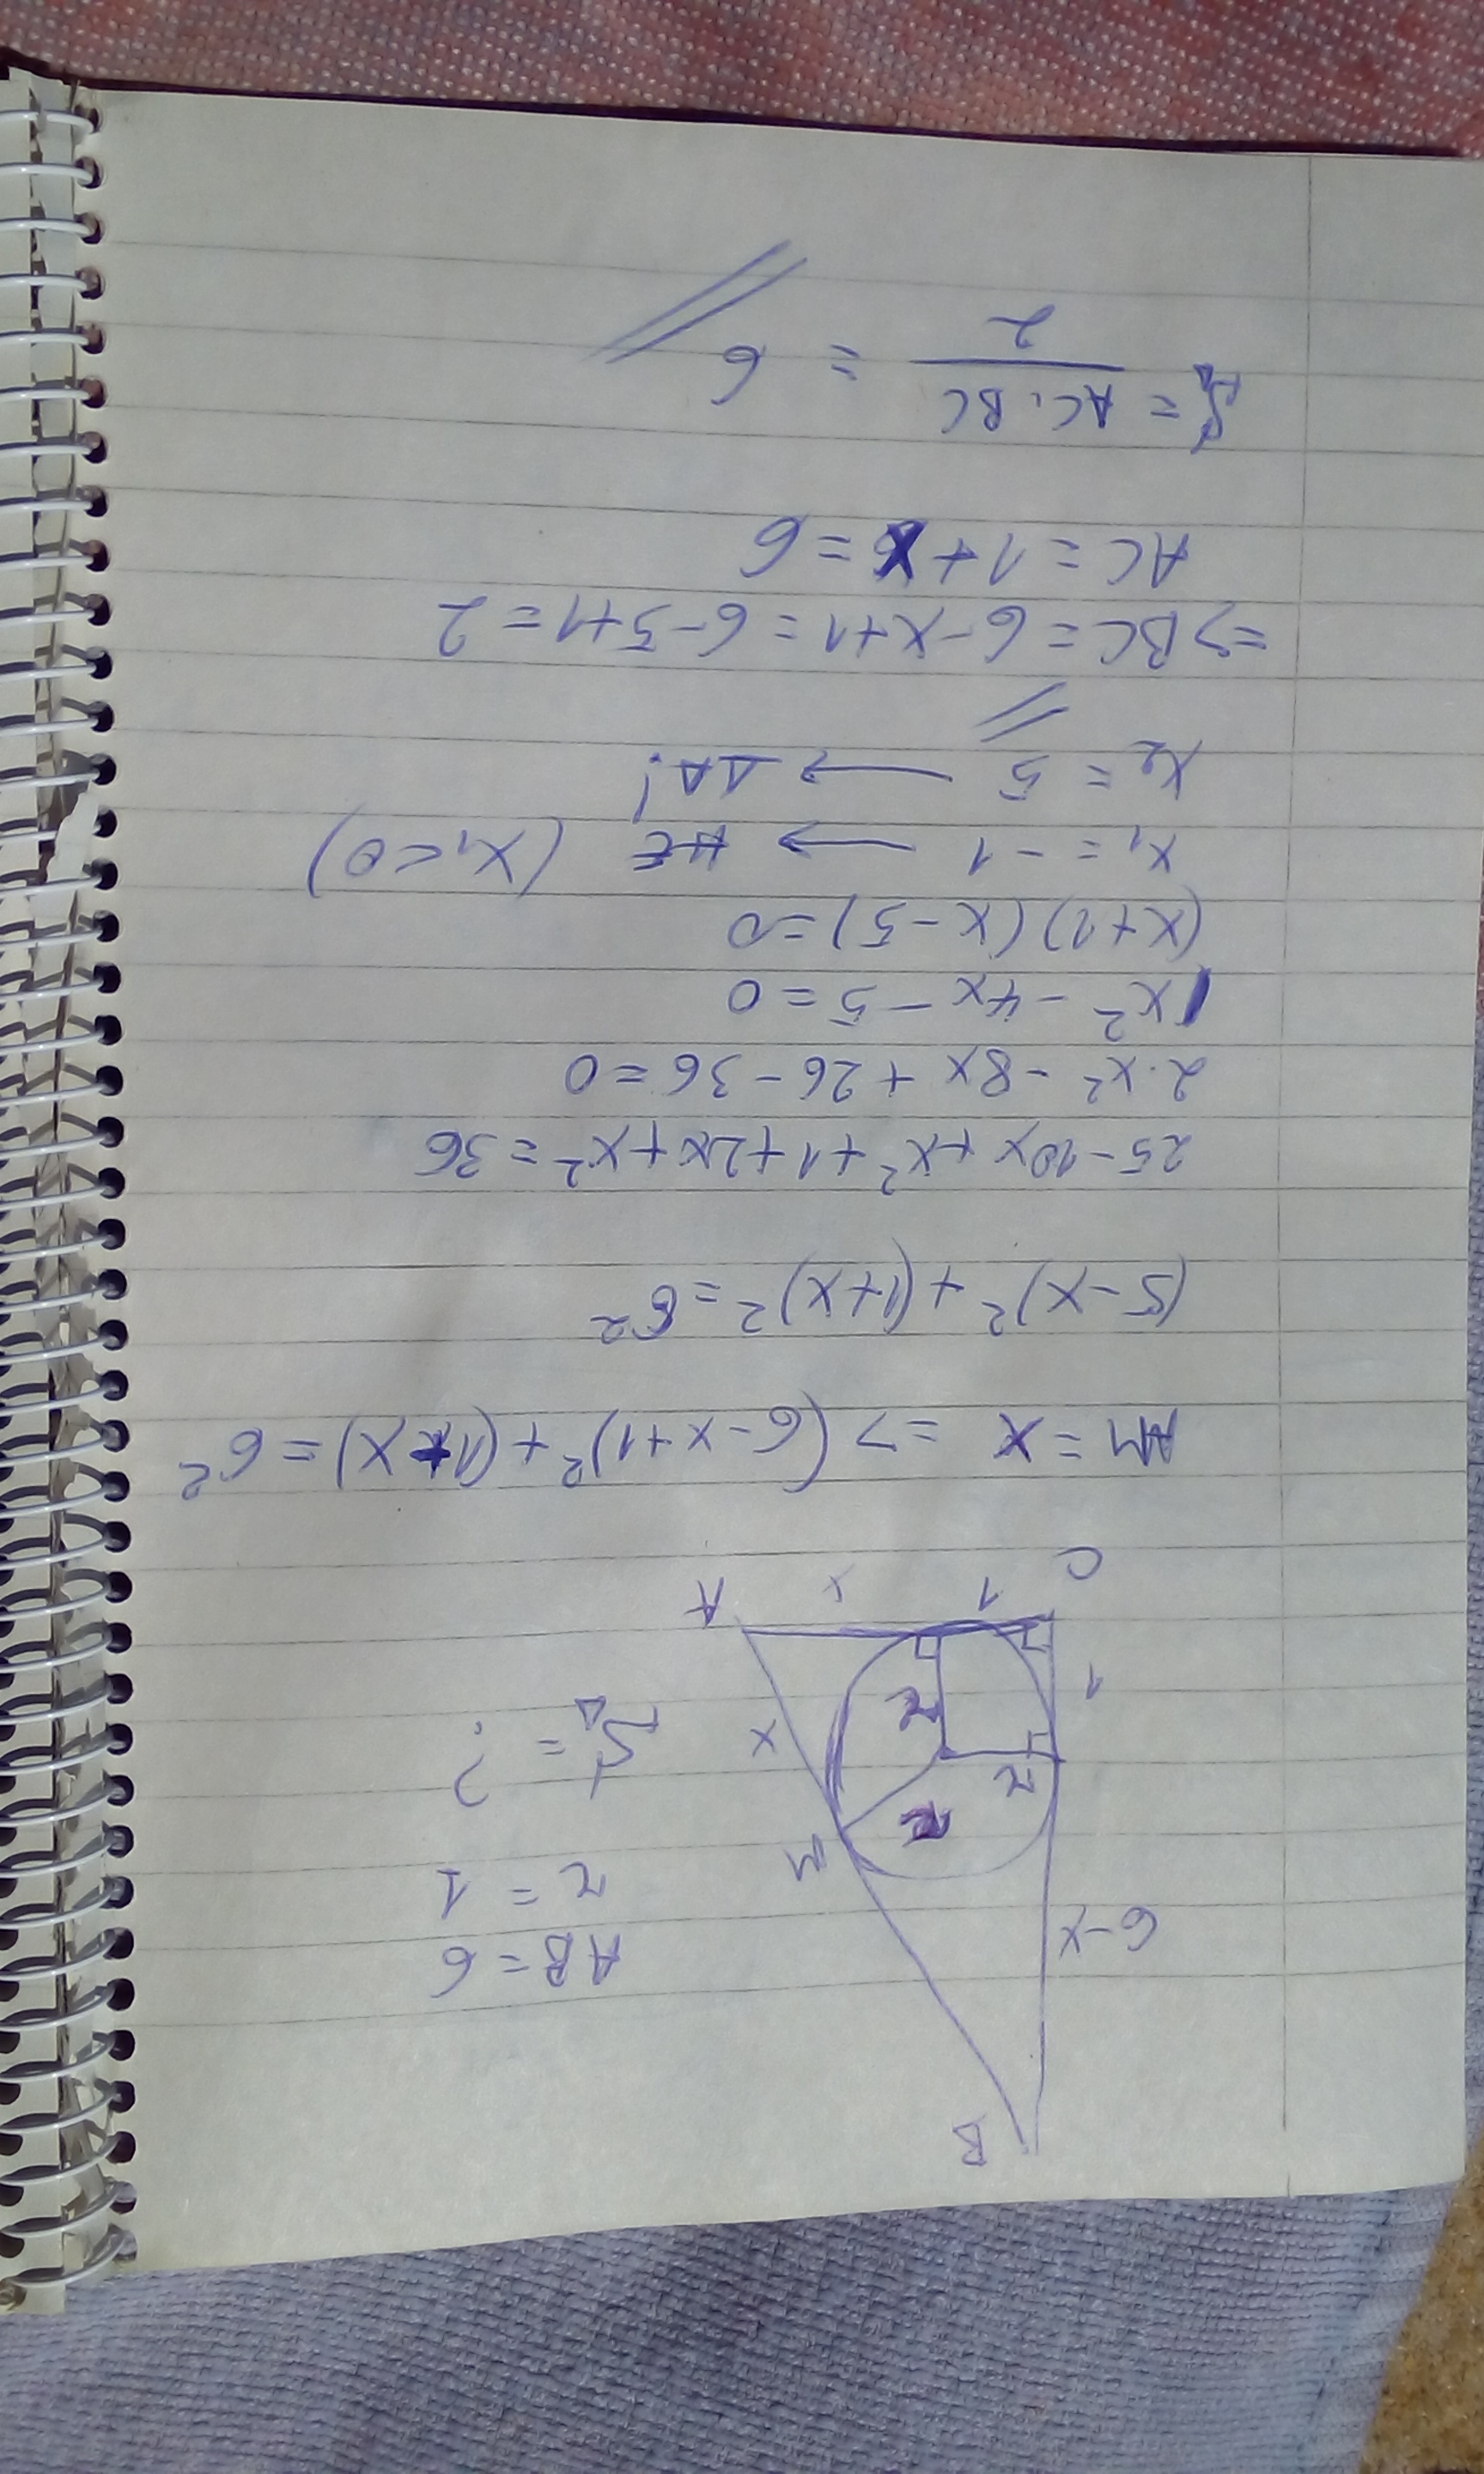 B
AB = 6
6-x
r = 1
M
r
r
S△ = ?
x
r
1
C
1
x
A
AM = x => (6-x+1)² + (1+x) = 6²
(5-x)² + (1+x)² = 6²
25-10x+x²+1+2x+x² = 36
2.x² - 8x + 26 - 36 = 0
x² - 4x - 5 = 0
(x+1)(x-5) = 0
x₁ = -1 → НЕ (x₁<0)
x₂ = 5 → ДА!
=> BC = 6-x+1 = 6-5+1 = 2
AC = 1+x = 6
S△ = AC.BC / 2 = 6